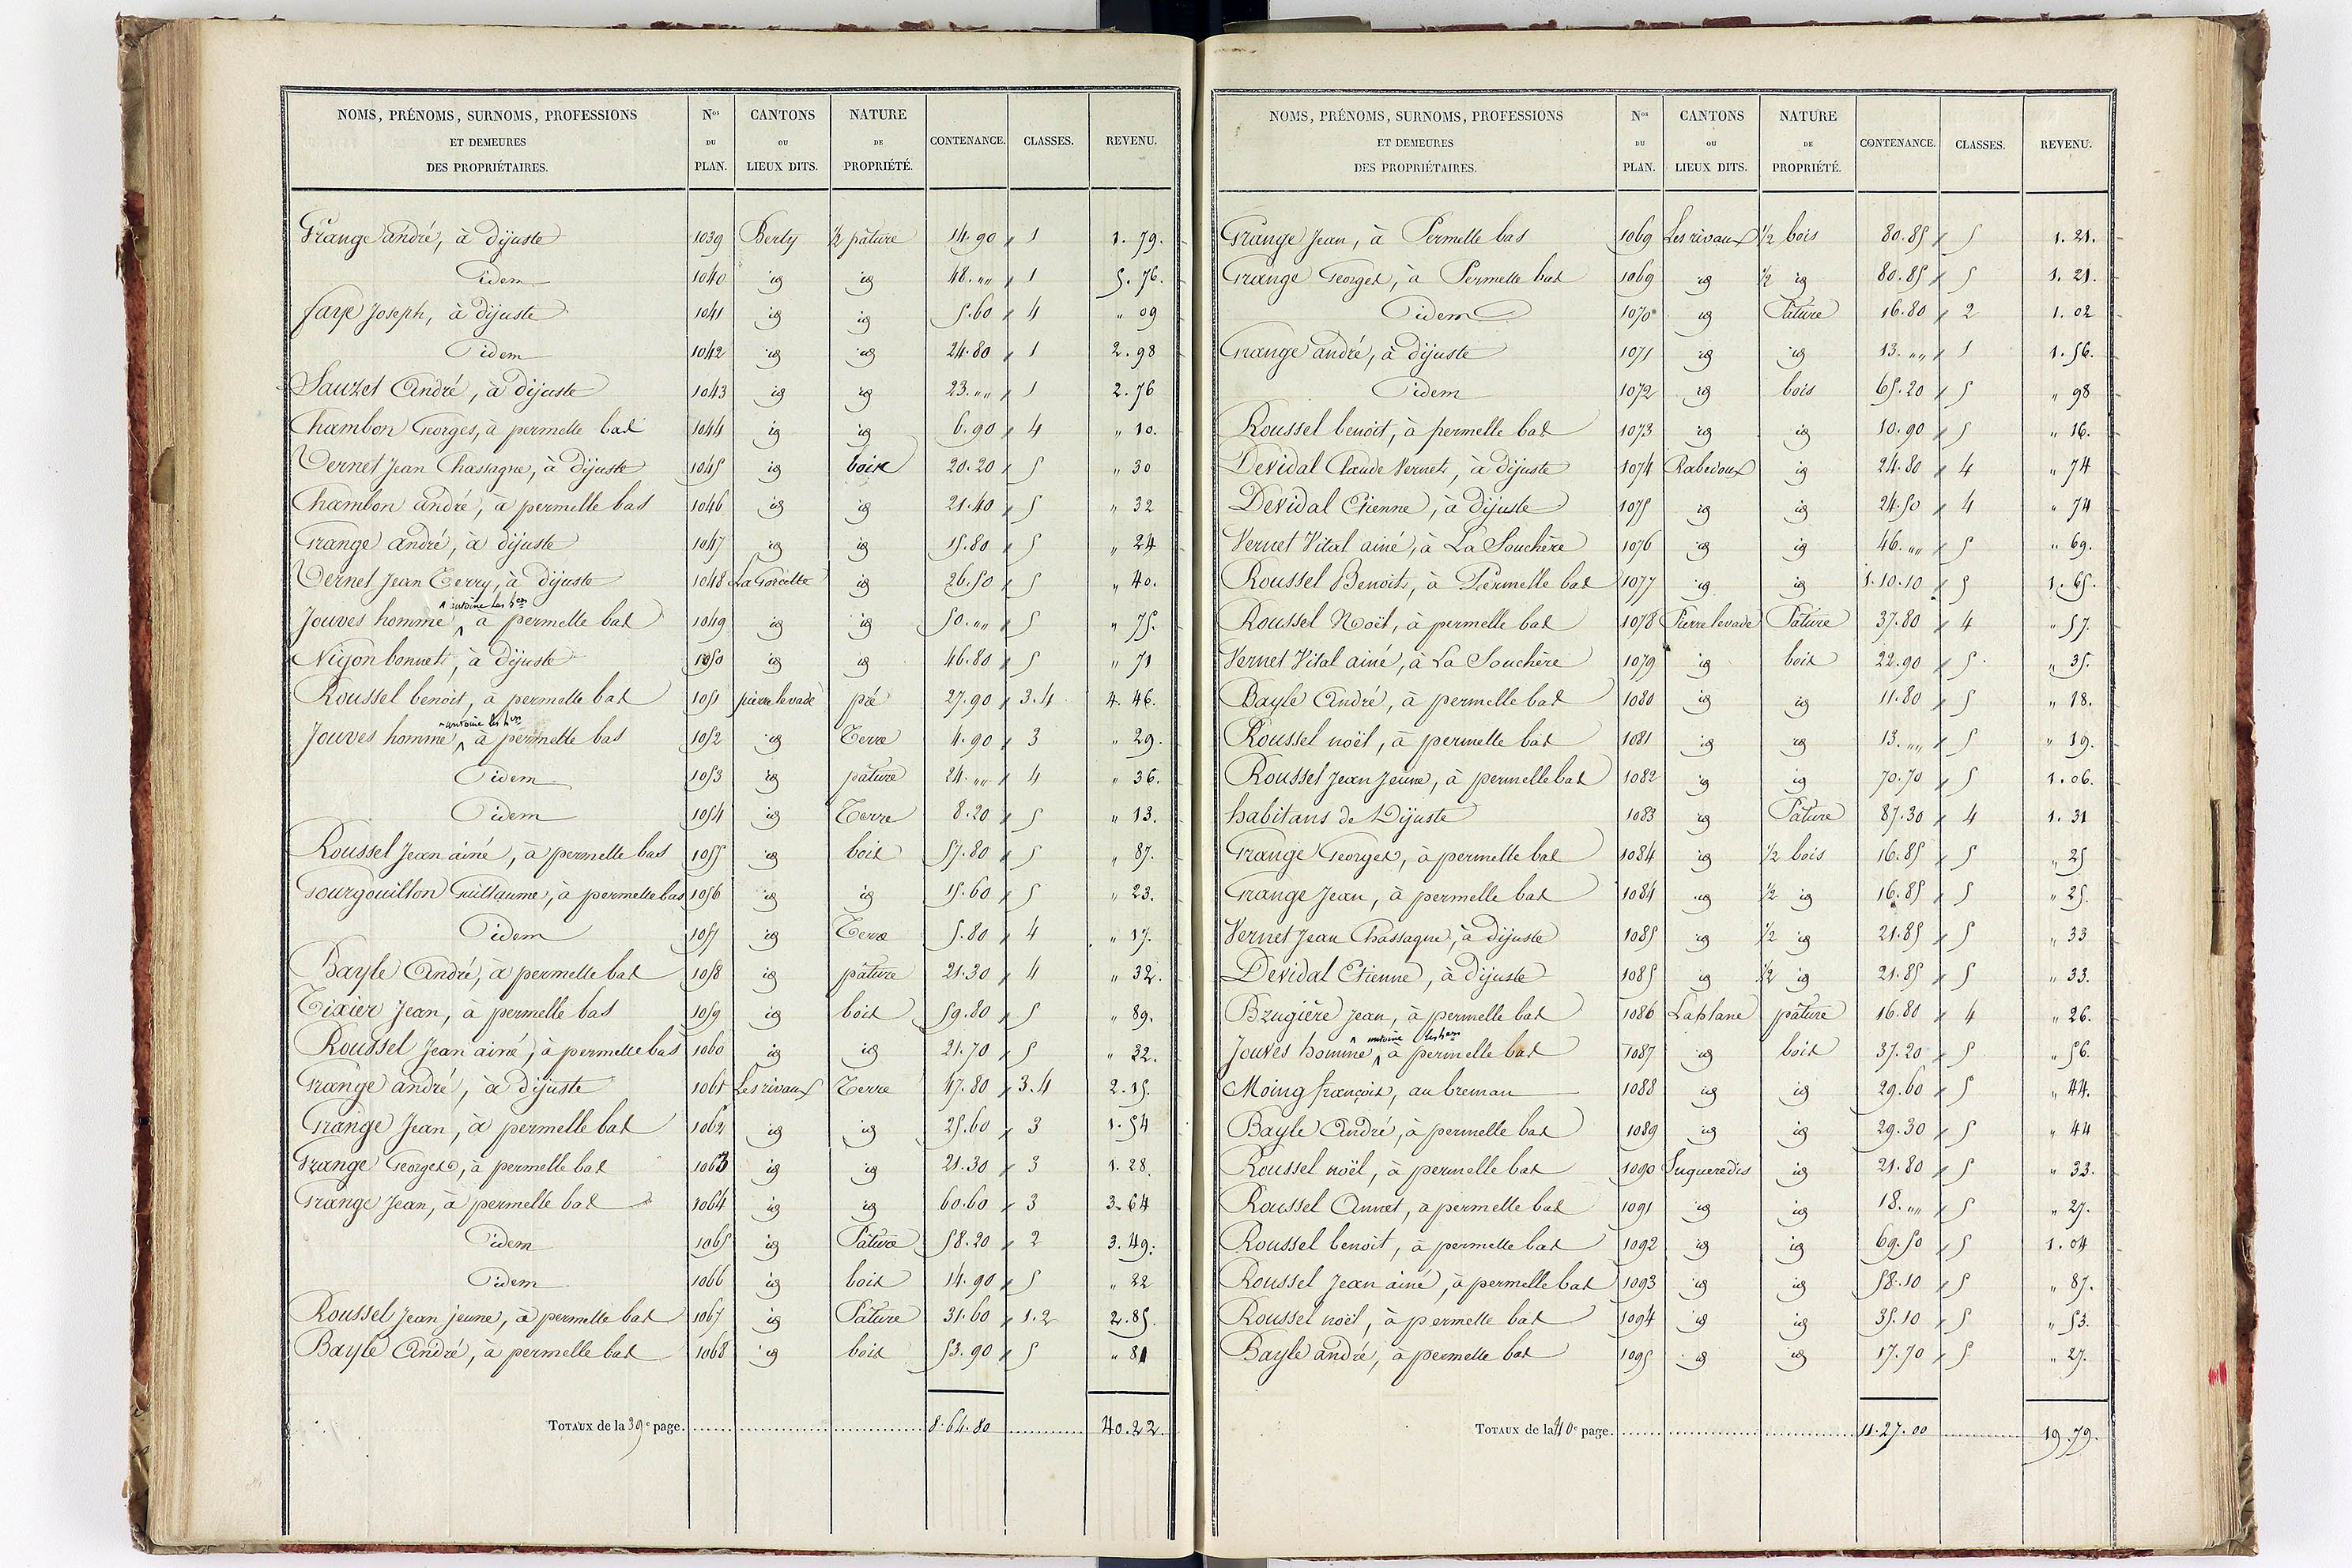 NOMS, PRÉNOMS, SURNOMS, PROFESSIONS ET DEMEURES DES PROPRIÉTAIRES. Nos DU PLAN. CANTONS OU LIEUX DITS. NATURE DE PROPRIÉTÉ. CONTENANCE. CLASSES. REVENU.
Grange andré, à dijuste 1039 Berty ½ pâture 14.90 1 1.79.
idem 1040 id id 48.,, 1 5.76.
faye Joseph, à dijuste 1041 id id 5.60 4 " 09
idem 1042 id id 24.80 1 2.98
Sauzet André, à dijuste 1043 id id 23.,, 1 2.76
Chambon Georges, à permelle bas 1044 id id 6.90 4 " 10.
Vernet Jean Chassagne, à dijuste 1045 id bois 20.20 5 " 30
Chambon andré, à permelle bas 1046 id id 21.40 5 " 32
Grange andré, à dijuste 1047 id id 15.80 5 " 24
Vernet Jean Terry, à dijuste 1048 La Gorcette id 26.50 5 " 40.
Jouves homme antoine les hers à permelle bas 1049 id id 50.,, 5 " 75.
Nigon bonnet, à dijuste 1050 id id 46.80 5 " 71
Roussel benoit, à permelle bas 1051 pierre levade pré 27.90 3.4 4.46.
Jouves homme antoine les hers à permelle bas 1052 id Terre 4.90 3 " 29.
idem 1053 id pâture 24.,, 4 " 36.
idem 1054 id Terre 8.20 5 " 13.
Roussel Jean ainé, à permelle bas 1055 id bois 57.80 5 " 87.
Gourgouillon Guillaume, à permelle bas 1056 id id 15.60 5 " 23.
idem 1057 id Terre 5.80 4 " 17.
Bayle André, à permelle bas 1058 id pâture 21.30 4 " 32.
Tixier Jean, à permelle bas 1059 id bois 59.80 5 " 89.
Roussel Jean ainé, à permelle bas 1060 id id 21.70 5 " 32.
Grange andré, à dijuste 1061 Les rivaux Terre 47.80 3.4 2.15.
Grange Jean, à permelle bas 1062 id id 25.60 3 1.54
Grange Georges, à permelle bas 1063 id id 21.30 3 1.28.
Grange Jean, à permelle bas 1064 id id 60.60 3 3.64
idem 1065 id Pâture 58.20 2 3.49.
idem 1066 id bois 14.90 5 " 22
Roussel Jean jeune, à permelle bas 1067 id Pâture 31.60 1.2 2.85.
Bayle André, à permelle bas 1068 id bois 53.90 5 " 81
TOTAUX de la 39e page. 8.64.80 40.22.
NOMS, PRÉNOMS, SURNOMS, PROFESSIONS ET DEMEURES DES PROPRIÉTAIRES. Nos DU PLAN. CANTONS OU LIEUX DITS. NATURE DE PROPRIÉTÉ. CONTENANCE. CLASSES. REVENU.
Grange Jean, à Permelle bas 1069 Les rivaux ½ bois 80.85 5 1.21.
Grange Georges, à Permelle bas 1069 id ½ id 80.85 5 1.21.
idem 1070 id Pâture 16.80 2 1.02
Grange andré, à dijuste 1071 id id 13.,, 1 1.56.
idem 1072 id bois 65.20 5 " 98
Roussel benoit, à permelle bas 1073 id id 10.90 5 " 16.
Devidal Claude Vernet, à dijuste 1074 Rabedoux id 24.80 4 " 74
Devidal Etienne, à dijuste 1075 id id 24.50 4 " 74
Vernet Vital ainé, à La Souchère 1076 id id 46.,, 5 " 69.
Roussel Benoit, à Permelle bas 1077 id id 1.10.10 5 1.65.
Roussel Noël, à permelle bas 1078 Pierre levade Pâture 37.80 4 " 57.
Vernet Vital ainé, à La Souchère 1079 id bois 22.90 5 " 35.
Bayle André, à permelle bas 1080 id id 11.80 5 " 18.
Roussel noël, à permelle bas 1081 id id 13.,, 5 " 19.
Roussel Jean Jeune, à permelle bas 1082 id id 70.70 5 1.06.
habitans de Dijuste 1083 id Pâture 87.30 4 1.31
Grange Georges, à permelle bas 1084 id ½ bois 16.85 5 " 25
Grange Jean, à permelle bas 1084 id ½ id 16.85 5 " 25.
Vernet Jean Chassagne, à dijuste 1085 id ½ id 21.85 5 " 33
Devidal Etienne, à dijuste 1085 id ½ id 21.85 5 " 33.
Brugière Jean, à permelle bas 1086 Laplane pâture 16.80 4 " 26.
Jouves homme antoine les hers à permelle bas 1087 id bois 37.20 5 " 56.
Moing françois, au breman 1088 id id 29.60 5 " 44.
Bayle André, à permelle bas 1089 id id 29.30 5 " 44
Roussel noël, à permelle bas 1090 Suqueredis id 21.80 5 " 33.
Roussel Annet, à permelle bas 1091 id id 18.,, 5 " 27.
Roussel benoit, à permelle bas 1092 id id 69.50 5 1.04
Roussel Jean ainé, à permelle bas 1093 id id 58.10 5 " 87.
Roussel noël, à permelle bas 1094 id id 35.10 5 " 53.
Bayle andré, à permelle bas 1095 id id 17.70 5 " 27.
TOTAUX de la 40e page. 11.27.00 19.79.